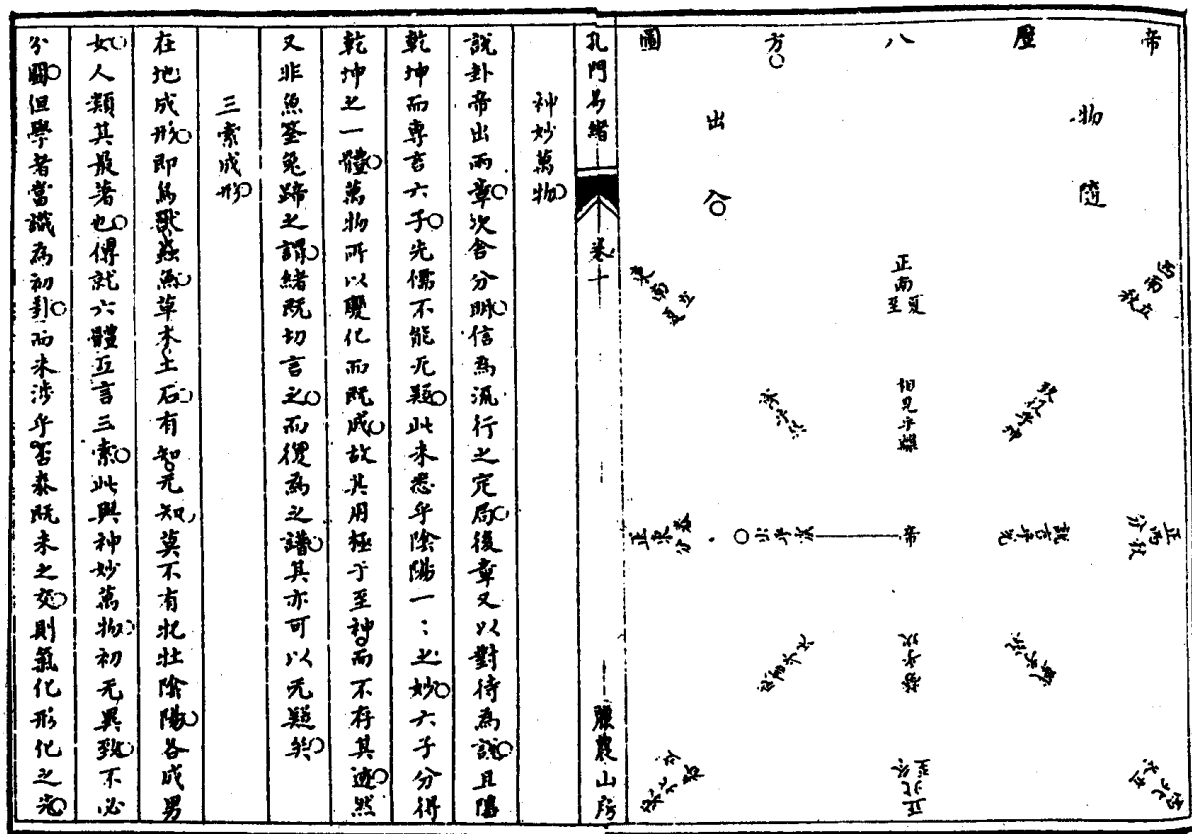 帝歷八方圖
物隨
出入
正南夏至
東南立夏
西南立秋
相見乎離
致役乎坤
帝
說言乎兌
正西秋分
正東春分
勞乎坎
正北冬至
孔門易緒
卷十
神妙萬物
說卦帝出兩章次舍分明信為流行之定局後章又以對待為說且隱
乾坤而專言六子先儒不能无疑此未悉乎陰陽一〻之妙六子分得
乾坤之一體萬物所以變化而既成故其用極于至神而不存其迹然
又非魚筌兔蹄之謂緒既切言之而復為之譜其亦可以无疑矣
三索成形
在地成形即為獸蟲魚草木土石有知无知莫不有牝牡陰陽各成男
女人類其最著也傳就六體互言三索此與神妙萬物初无異致不必
分圖但學者當識為初剖而未涉乎否泰既未之交則氣化形化之先